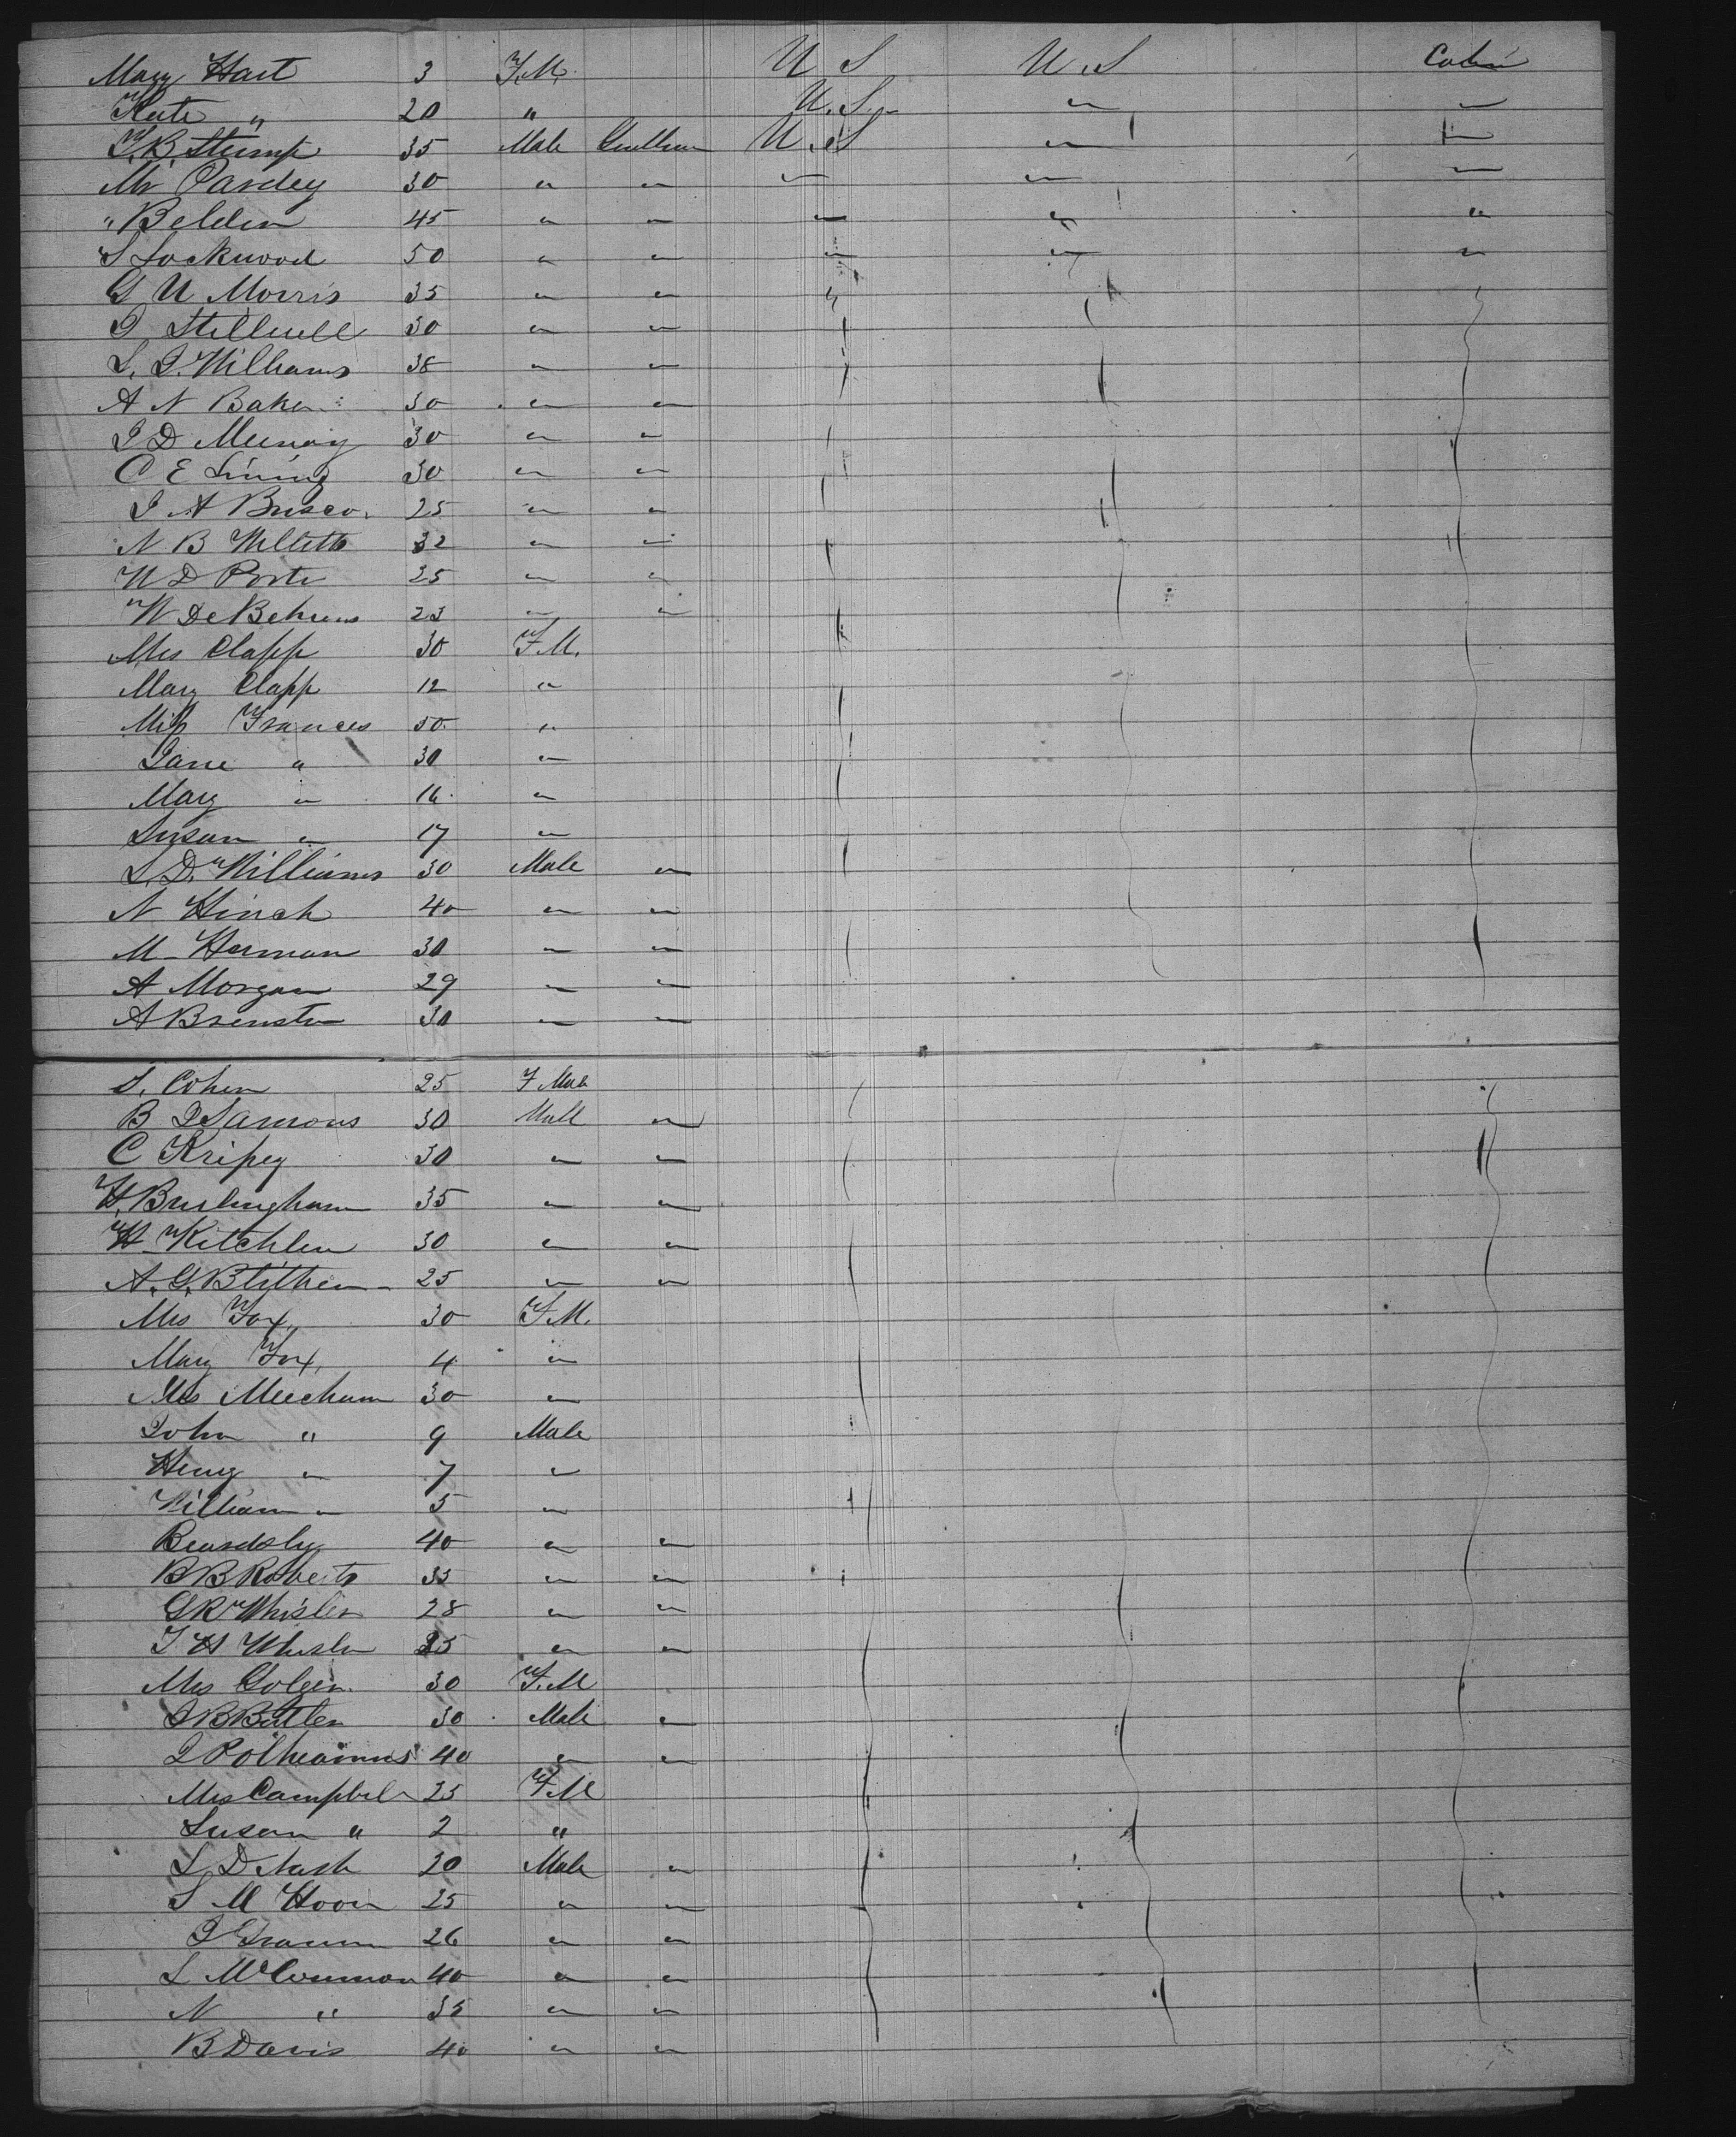 Mary Hart 3 F.M. U S U.S Cabin
Kate " 20 " U.S. " "
J.B. Stump 35 Male Gentleman U.S " "
Mr Pardey 30 " " " " "
" Belden 45 " " " " "
S Lockwood 50 " " " " "
G U Morris 35 " " "
J Stillwell 30 " "
S. J. Williams 38 " "
A N Baker 30 " "
J D Murray 30 " "
C E 30 " "
J A Brisco. 25 " "
N B Willetts 32 " "
W D Porte 25 " "
W De Behrens 23 " "
Mrs Clapp 30 F.M.
Mary Clapp 12 "
Miss Frances 50 "
Jane " 30 "
Mary " 16 "
Susan " 17 "
S.D. Williams 30 Male "
N Hinch 40 " "
M Herman 30 " "
A Morgan 29 " "
A 30 " "
S. Cohen 25 F Male
B J Samons 30 Male "
C 30 " "
H. Burlingham 35 " "
H Kitchlen 30 " "
A. G. Blithen 25 " "
Mrs Fox, 30 F.M.
Mary Fox, 4 "
Mrs Meecham 30 "
John " 9 Male
Henry " 7 "
William " 5 "
Beardsly 40 " "
B B Roberts 35 " "
G R Whisler 28 " "
J H Whisler 25 " "
Mrs Golgen 30 F.M
J B Butler 30 Male "
J Polheamus 40 " "
Mrs Campbel 25 F.M
Susan " 2 "
S. D Nash 30 Male "
S M Hoover 25 " "
J 26 " "
S McCommon 40 " "
N " 35 " "
B Davis 40 " "